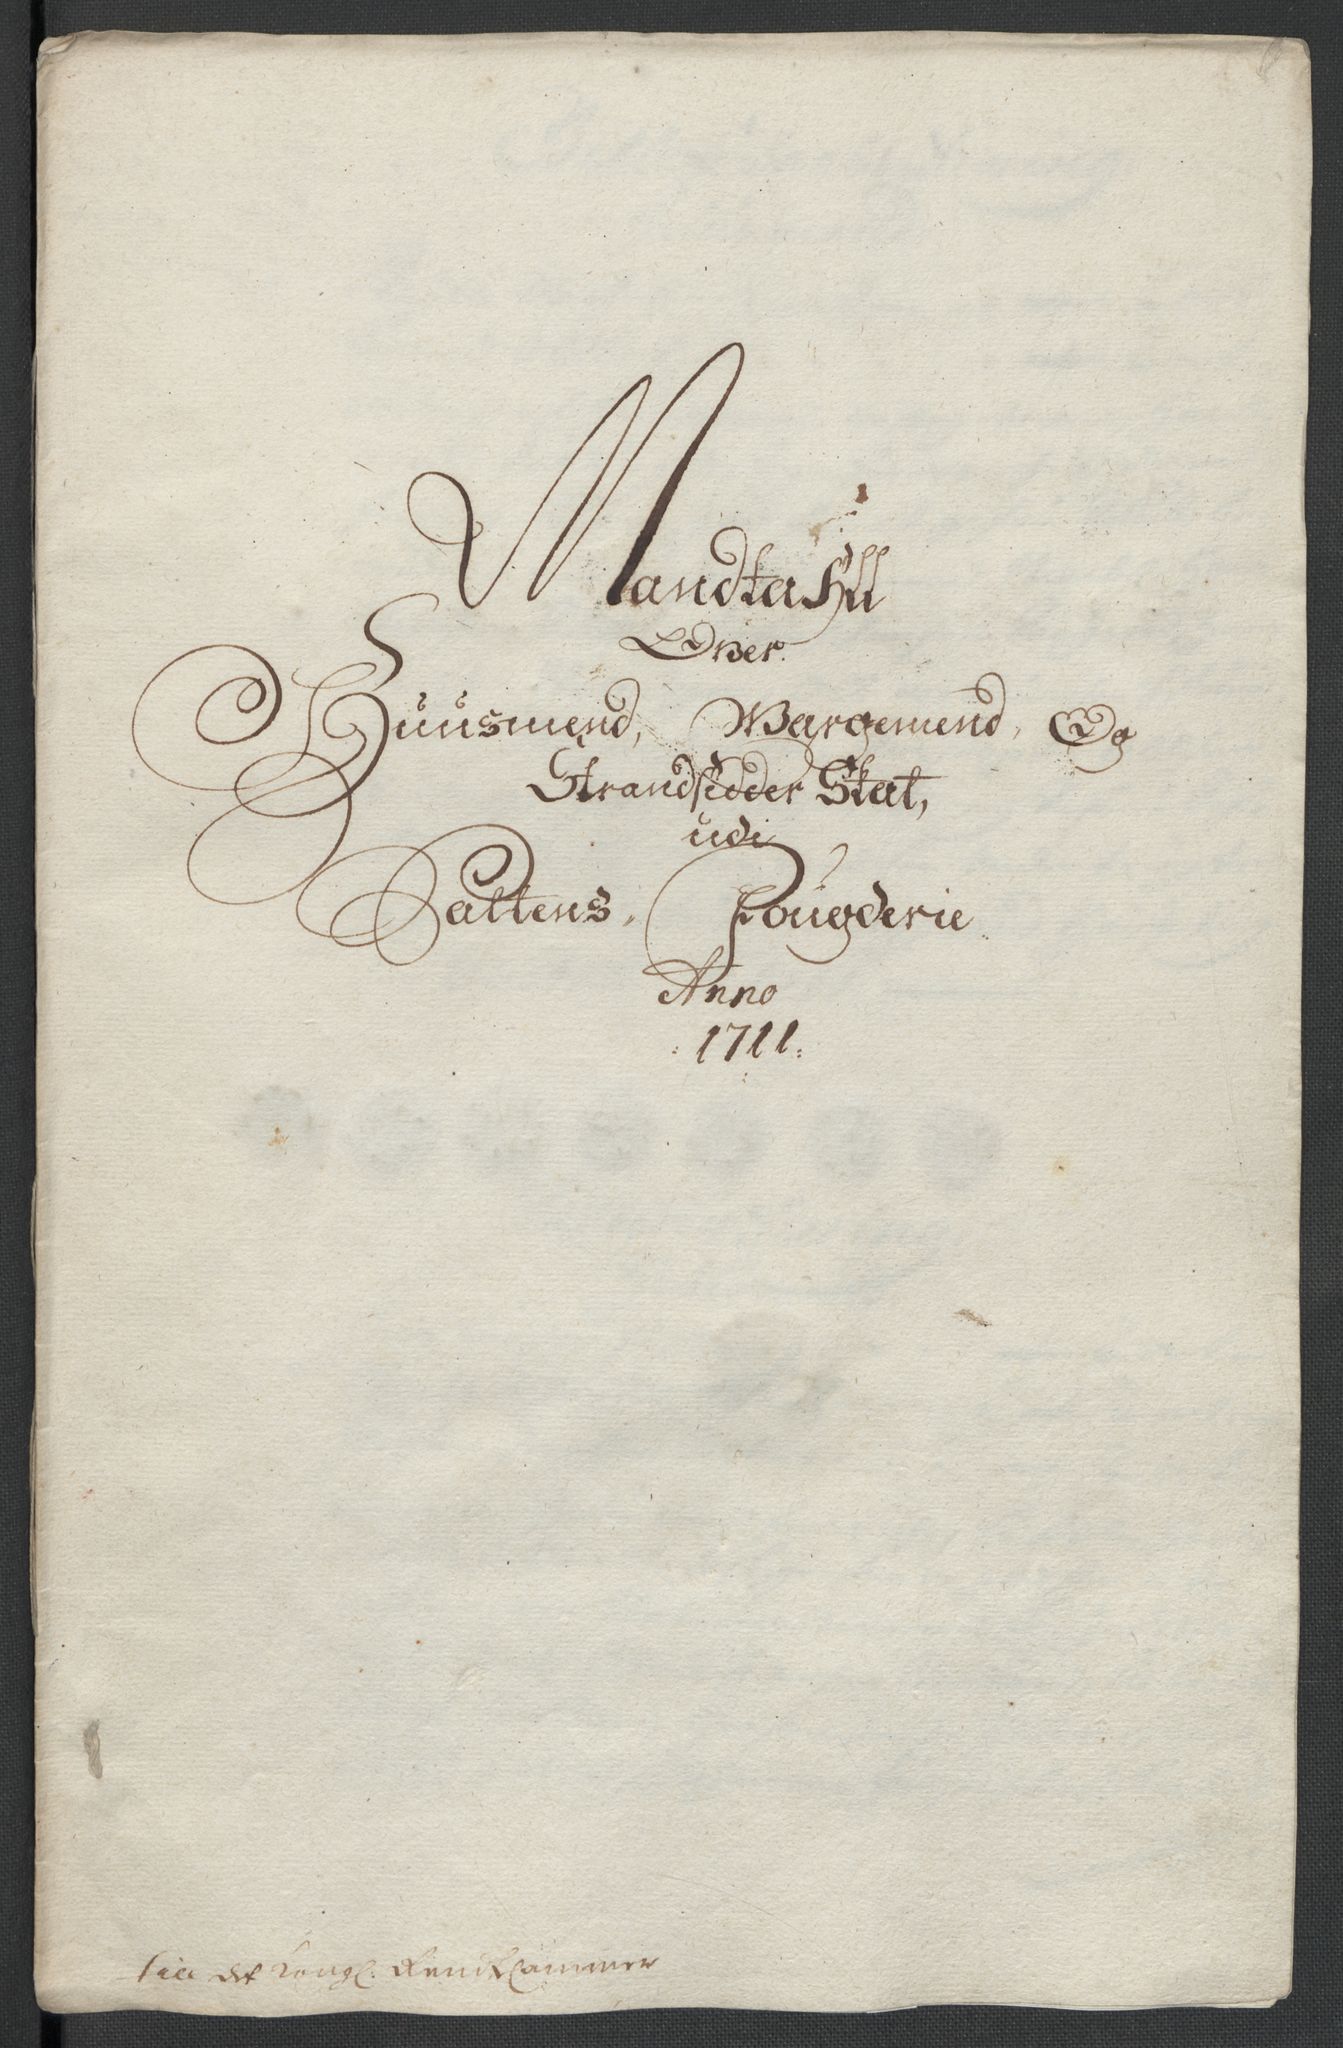 Mandtahll
Over
Huusmend, Wargemend, Og
Strandsidder Skat,
udi
Saltens, Fougderie
Anno
1711.
Till det Kongl: RendtCammer